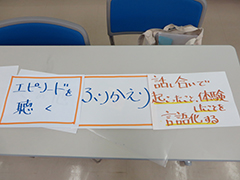 エピソードを
聴く
ふりかえり
話し合いで
起こったこと、体験
したことを
言語化する